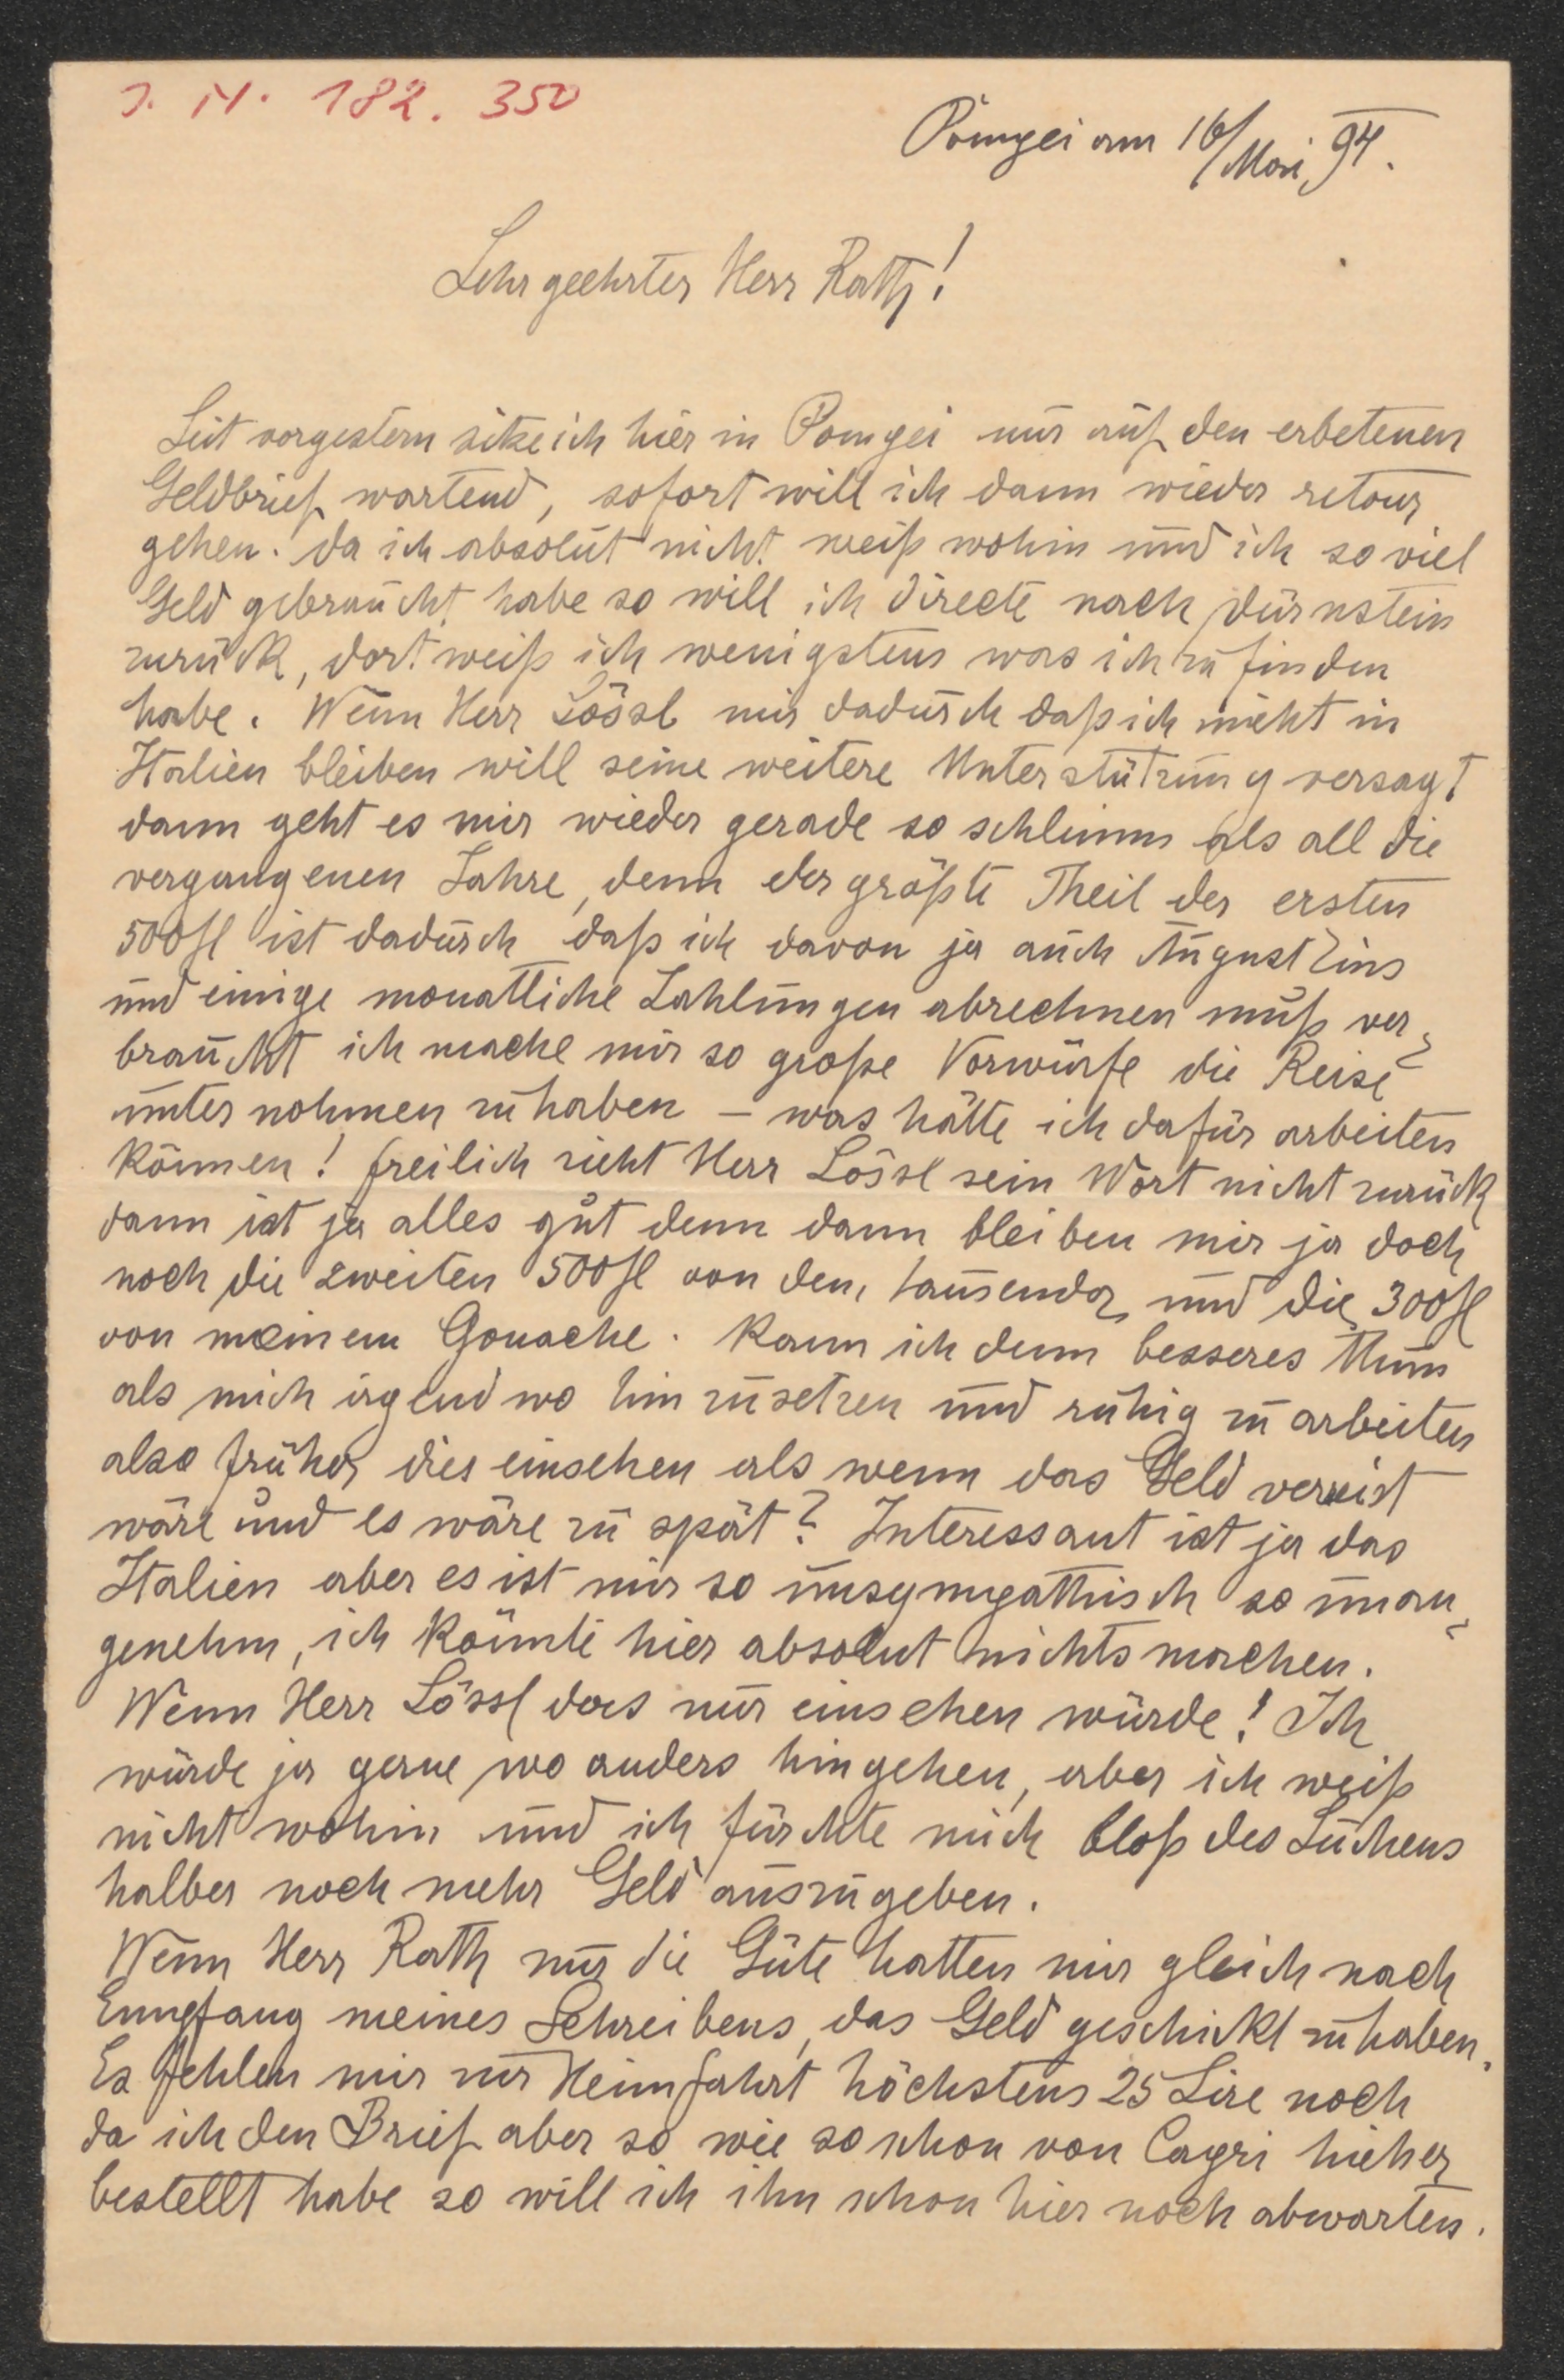 J. N. 182. 350
Pompei am 16/Mai 94.
Sehr geehrter Herr Rath!
Seit vorgestern sitze ich hier in Pompei nur auf den erbetenen
Geldbrief wartend, sofort will ich dann wieder retour
gehen. da ich absolut nicht weiß wohin und ich so viel
Geld gebraucht habe so will ich directe nach Dürnstein
zurück, dort weiß ich wenigstens was ich zu finden
habe. Wenn Herr Lössl mir dadurch daß ich nicht in
Italien bleiben will seine weitere Unterstützung versagt
dann geht es mir wieder gerade so schlimm als all die
vergangenen Jahre, denn der größte Theil der ersten
500fl ist dadurch daß ich davon ja auch August Zins
und einige monatliche Zahlungen abrechnen muß ver-
braucht ich mache mir so große Vorwürfe die Reise
unternohmen zu haben – was hätte ich dafür arbeiten
können! freilich zieht Herr Lössl sein Wort nicht zurück
dann ist ja alles gut denn dann bleiben mir ja doch
noch die zweiten 500fl von den, tausender und die 300fl
von meinem Gouache. Kann ich denn besseres thun
als mich irgendwo hinzusetzen und ruhig zu arbeiten
also früher dies einsehen als wenn das Geld verreist
wäre und es wäre zu spät? Interessant ist ja das
Italien aber es ist mir so unsympathisch so unan-
genehm, ich könnte hier absolut nichts machen.
Wenn Herr Lössl das nur einsehen würde! Ich
würde ja gerne wo anders hingehen, aber ich weiß
nicht wohin und ich fürchte mich bloß des Suchens
halber noch mehr Geld auszugeben.
Wenn Herr Rath nur die Güte hatten mir gleich nach
Empfang meines Schreibens, das Geld geschickt zu haben.
Es fehlen mir zur Heimfahrt höchstens 25 Lire noch
da ich den Brief aber so wie so schon von Capri hieher
bestellt habe so will ich ihn schon hier noch abwarten.